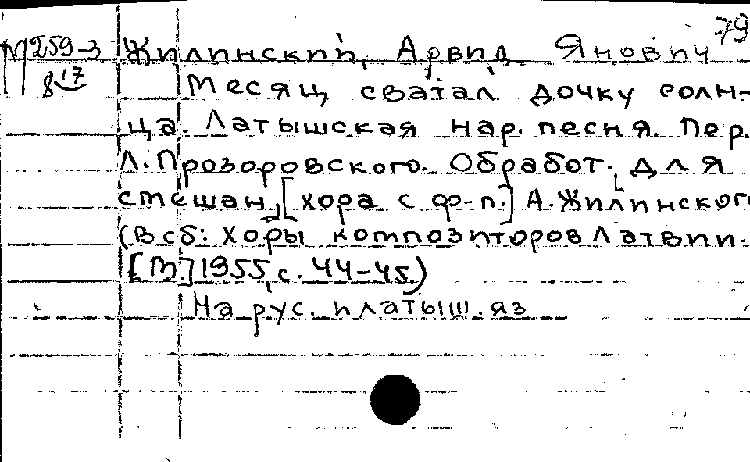 79
М259-3 Жилинский, Арвид Янович
8 17 Месяц сватал дочку солн-
ца. Латышская нар. песня. Пер.
Л. Прозоровского. Обработ. для
смешан. [хора с ф-п.] А. Жилинского
(В сб: Хоры композиторов Латвии.
[М.] 1955, с. 44-45)
На рус. и латыш. яз